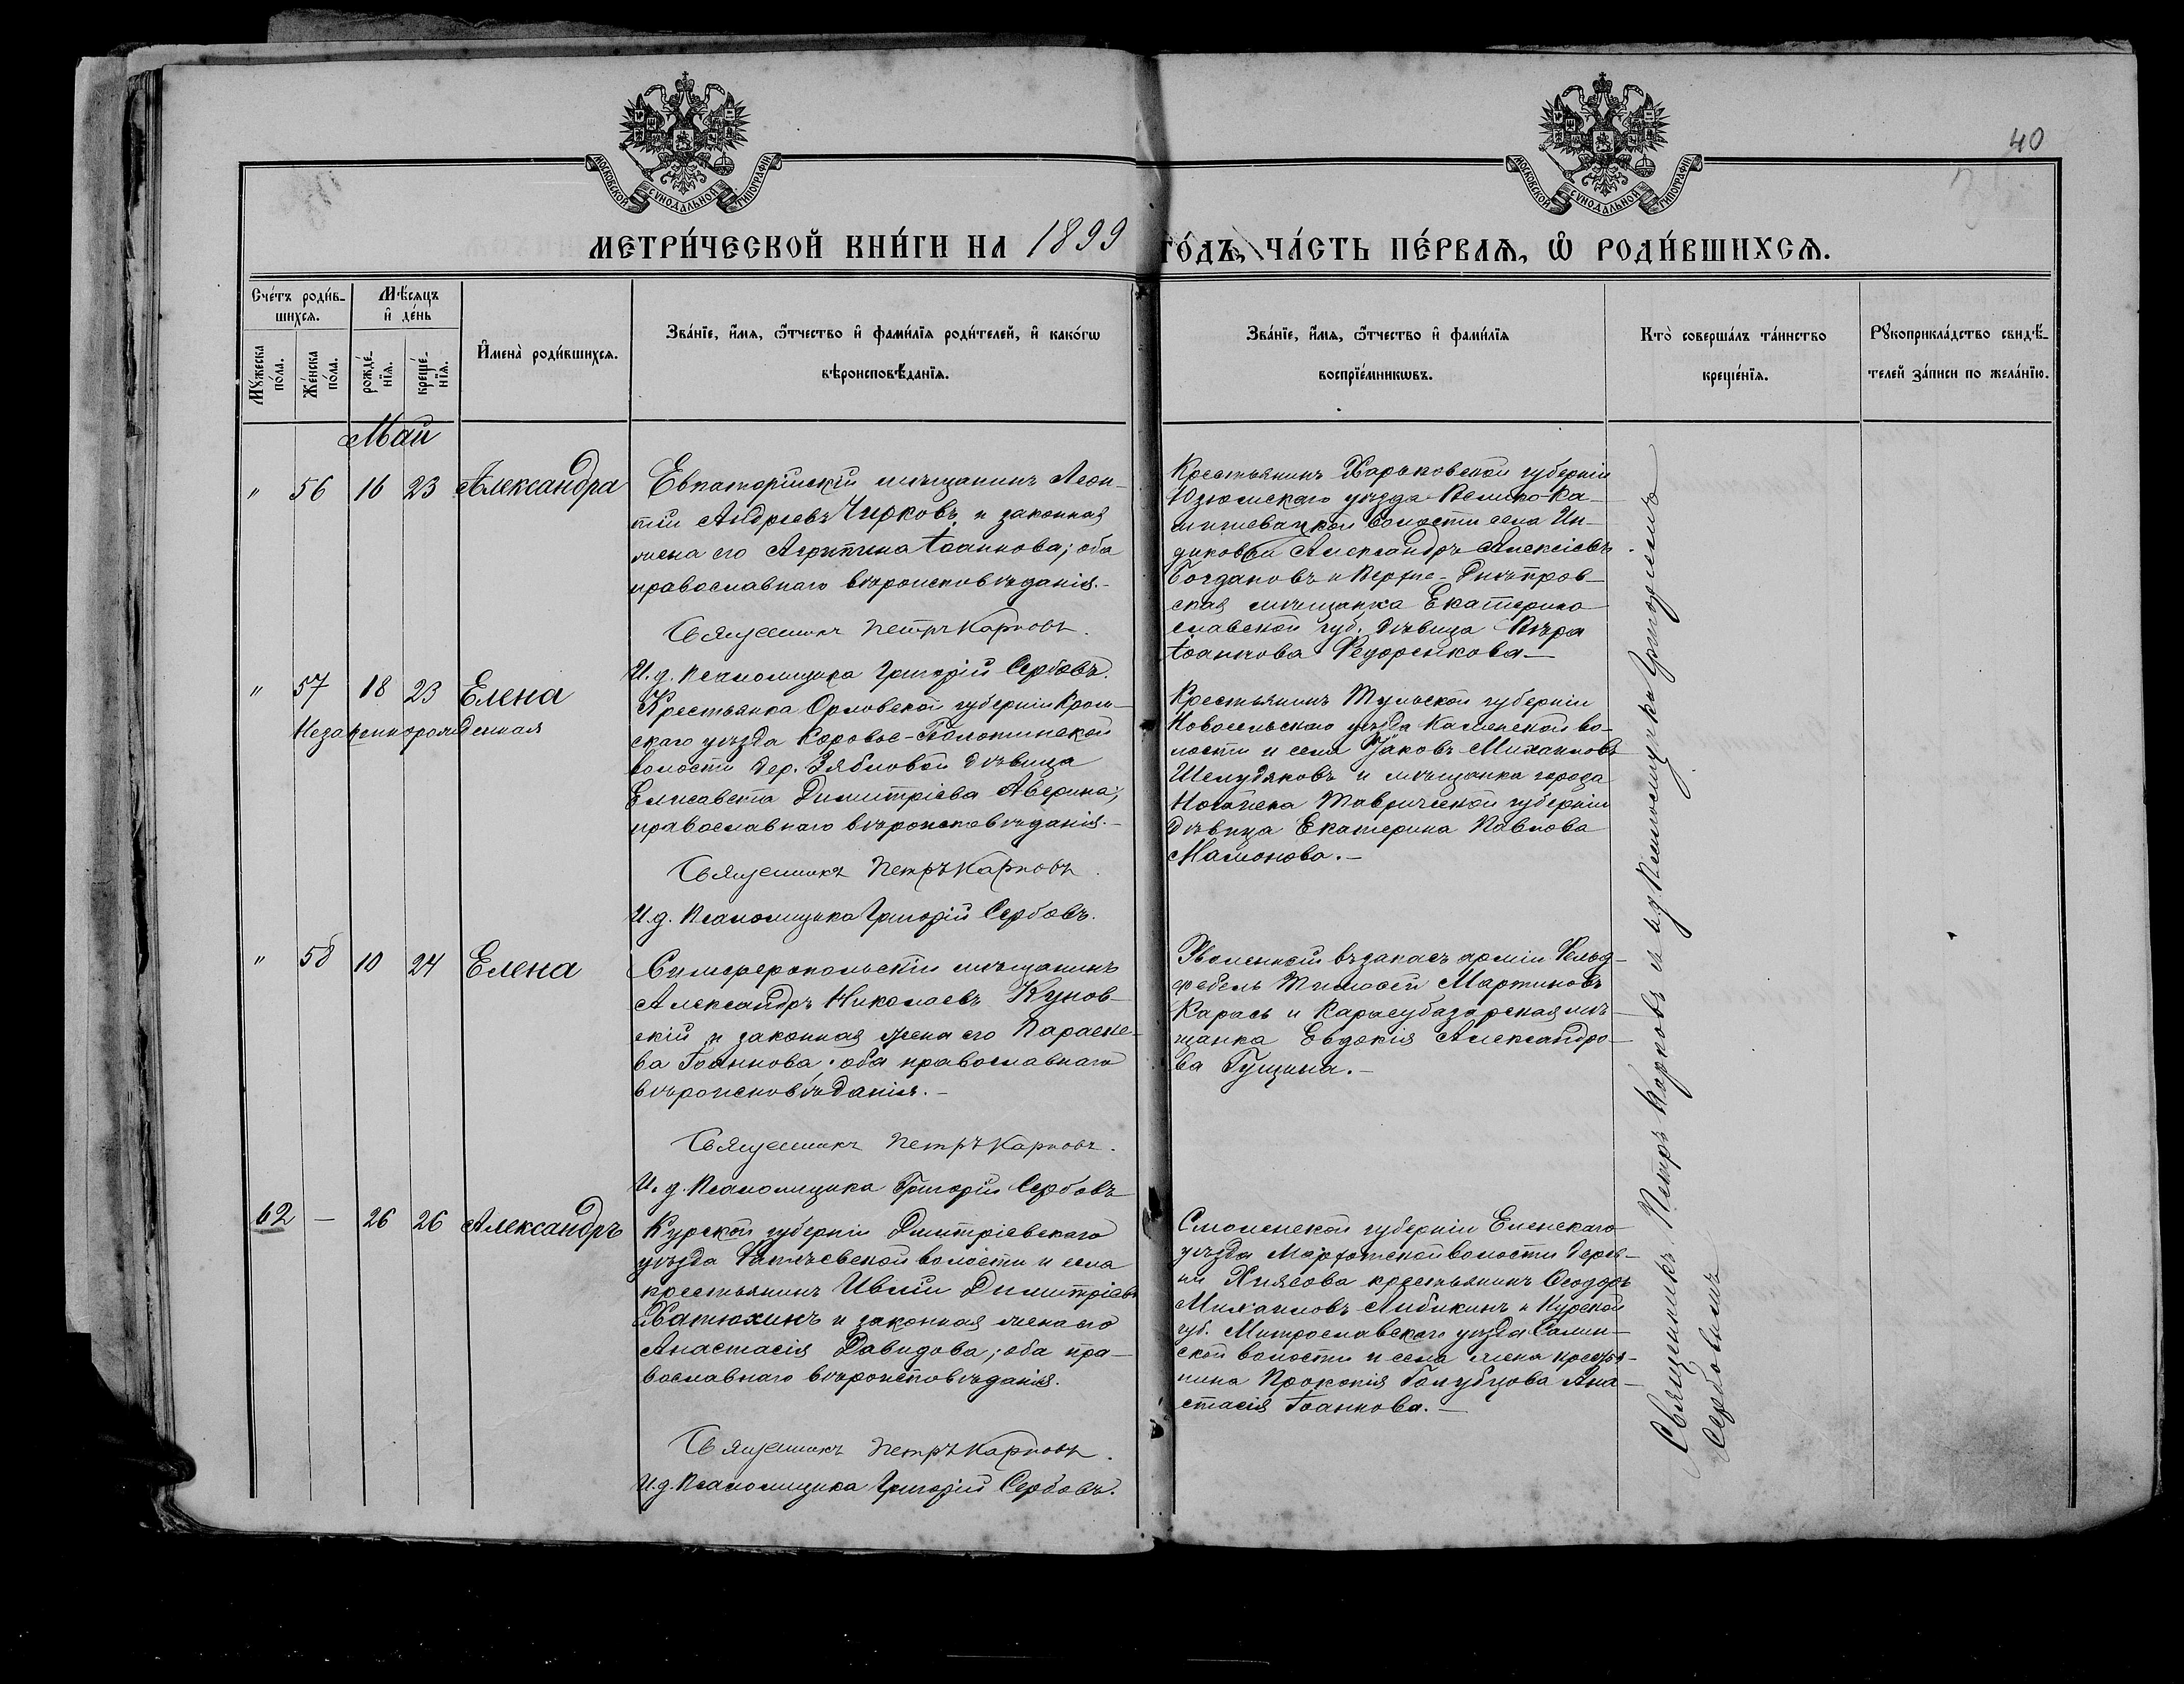 40
МОСКОВСКОЙ СУНОДАЛЬНОЙ ТИПОГРАФІИ
МОСКОВСКОЙ СУНОДАЛЬНОЙ ТИПОГРАФІИ
МЕТРИ́ЧЕСКОЙ КНИ́ГИ НА 1899 ГО́ДЪ, ЧА́СТЬ ПЕ́РВАѦ, Ѡ҆ РОДИ́ВШИХСѦ.
Сче́тъ роди́в-
шихсѧ.
Мꙋ́жеска по́ла.
Же́нска по́ла.
Мѣ́сѧцъ и҆ де́нь
рожде́нїѧ.
креще́нїѧ.
И҆мена̀ роди́вшихсѧ.
Зва́нїе, и҆́мѧ, ѻ҆́тчество и҆ фами́лїѧ роди́телей, и҆ како́гѡ
вѣроисповѣ́данїѧ.
Зва́нїе, и҆́мѧ, ѻ҆́тчество и҆ фами́лїѧ
воспрїе́мникѡвъ.
Кто̀ соверша́лъ та́инство
креще́нїѧ.
Рꙋкоприкла́дство свидѣ́-
телей за́писи по жела́нїю.
Май
" 56 16 23 Александра
Евпаторійскій мѣщанинъ Леон-
тій Андреевъ Чирковъ и законная
жена его Агриппина Іоаннова; оба
православнаго вѣроисповѣданія.-
Священникъ Петръ Карповъ.
И.д. Псаломщика Григорій Сербовъ.
Крестьянинъ Харьковской губерніи
Изюмскаго уѣзда Велико-Ка-
мышевахской волости села Ин-
диковба Александръ Алексіевъ
Богдановъ и Верхне-Днѣпров-
ская мѣщанка Екатерино
славской губ. дѣвица Вѣра
Іоаннова Федоренкова-
" 57 18 23 Елена
Незаконнорожденная
Крестьянка Орловской губерніи Кром-
скаго уѣзда Коровье-Болотинской
волости дер. Зябловой дѣвица
Елисавета Димитріева Аверина;
православнаго вѣроисповѣданія.-
Священникъ Петръ Карповъ.
И.д. Псаломщика Григорій Сербовъ.
Крестьянинъ Тульской губерніи
Новосельскаго уѣзда Каменской во-
лости и села Іаковъ Михаиловъ
Шелудяковъ и мѣщанка города
Ногайска Таврической губерніи
дѣвица Екатерина Павлова
Мамонова.-
" 58 10 24 Елена
Симферопольскій мѣщанинъ
Александръ Николаевъ Кунов-
скій и законная жена его Параске-
ва Іоаннова; оба православнаго
вѣроисповѣданія.-
Священникъ Петръ Карповъ.
И.д. Псаломщика Григорій Сербовъ
Уволенный въ запасъ арміи Фельд-
фебель Тимофей Мартиновъ
Карась и Карасубазарская мѣ-
щанка Евдокія Александро-
ва Гущина.-
62 — 26 26 Александръ
Курской губерніи Димитріевскаго
уѣзда волости и села
крестьянинъ Ивлій Димитріевъ
Хатюхинъ и законная жена его
Анастасія Давидова; оба пра-
вославнаго вѣроисповѣданія.
Священникъ Петръ Карповъ.
И.д. Псаломщика Григорій Сербовъ.
Смоленской губерніи Еленскаго
уѣзда волости дерев-
ни крестьянинъ Ѳеодоръ
Михаиловъ и Курской
губ. уѣзда
ской волости и села жена крестья-
нина Прокопія Голубцова Ана-
стасія Іоаннова.-
Священникъ Петръ Карповъ и и.д. Псаломщика Григоріемъ
Сербовымъ